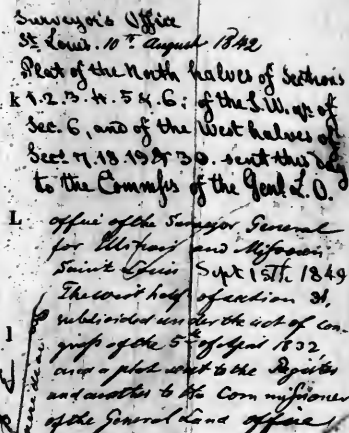 Surveyor's Office
St. Louis. 10th August 1842
Plat of the North halves of Sections
k 1. 2. 3. 4. 5 & 6; of the S.W. qr of
Sec. 6, and of the West halves of
Secs 7, 18 19 & 30. sent this day
to the Commrs of the Genl L. O.
L office of the Surveyor General
for Illinois and Missouri
Saint Louis Sept 15th 1849
The west half of section 31,
l subdivided under the act of con-
gress of the 5th of April 1832
and a plat sent to the Register
and another to the Commissioner
of the General Land office